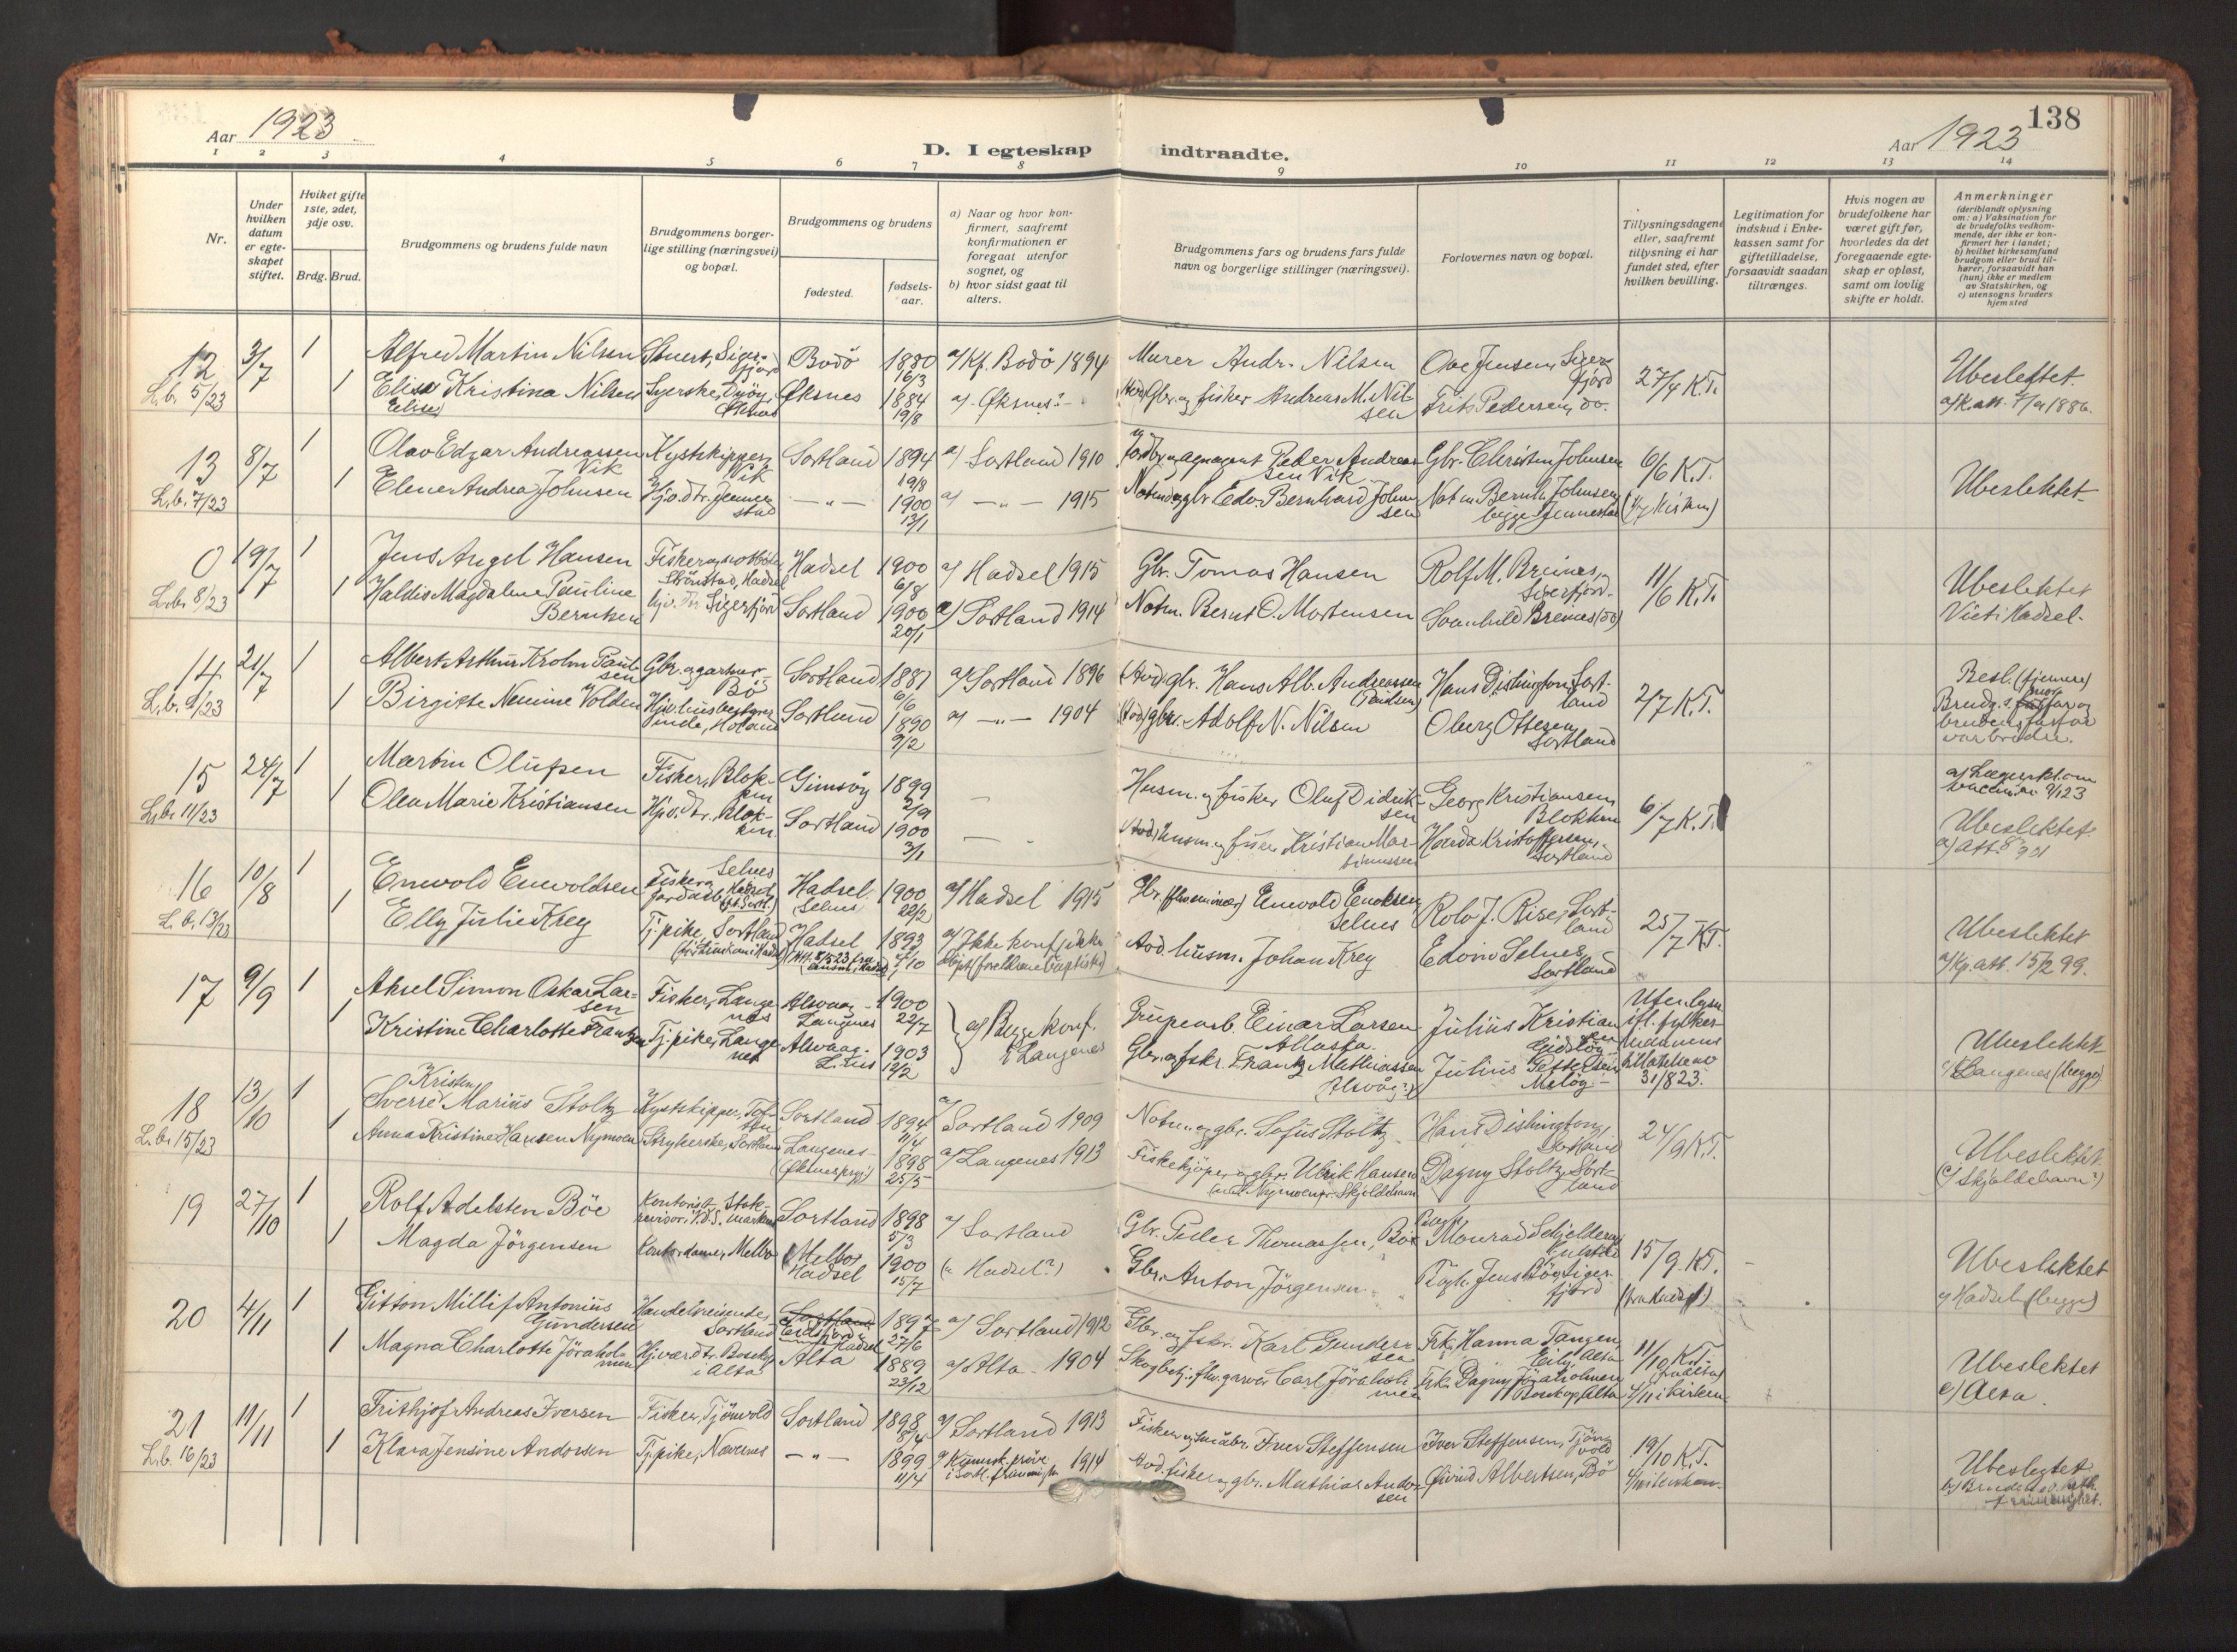 138
Aar 1923
D. I egteskap indtraadte.
Aar 1923
1 2 3 4 5 6 7 8 9 10 11 12 13 14
Nr.
Under hvilken datum er egteskapet stiftet.
Hviket gifte 1ste, 2det, 3dje osv.
Brdg. Brud.
Brudgommens og brudens fulde navn
Brudgommens borgerlige stilling (næringsvei) og bopæl.
Brudgommens og brudens
fødested.
fødselsaar.
a) Naar og hvor konfirmert, saafremt konfirmationen er foregaat utenfor sognet, og
b) hvor sidst gaat til alters.
Brudgommens fars og brudens fars fulde navn og borgerlige stillinger (næringsvei).
Forlovernes navn og bopæl.
Tillysningsdagene eller, saafremt tillysning ei har fundet sted, efter hvilken bevilling.
Legitimation for indskud i Enkekassen samt for giftetilladelse, forsaavidt saadan tiltrænges.
Hvis nogen av brudefolkene har været gift før, hvorledes da det foregaaende egteskap er opløst, samt om lovlig skifte er holdt.
Anmerkninger
(deriblandt oplysning om: a) Vaksination for de brudefolks vedkommende, der ikke er konfirmert her i landet; b) hvilket kirkesamfund brudgom eller brud tilhører, forsaavidt han (hun) ikke er medlem av Statskirken, og c) utensogns bruders hjemsted
12 3/7 1 Alfred Martin Nilsen Stuert, Sigerfjord Bodö 1880 16/3 a/ Kf. Bodö 1894 Murer Andr. Nilsen Ove Jensen, Sigerfjord 27/4 K.T. Ubeslektet.
L.b. 5/23 1 Elisa Kristina Nilsen Syerske, Øksnes 1884 19/8 a/ Øksnes? Gbr. og fisker Andreas M. Nilsen Frits Pedersen, do.
Elise
13 8/7 1 Olav Edgar Andreassen Vik Kystskipper, Vik Sortland 1894 19/8 a/ Sortland 1910 Peder Andreassen Vik Gbr. Christen Johnsen 6/6 K.T. Ubeslektet
L.b. 7/23 1 Elene Andrea Johnsen Hjv. dtr. Jennestad -"- 1900 13/1 a/ -"- 1915 Notmd og gbr Edv. Bernhard Johnsen Notm. Bernh. Johnsen, begge Jennestad
0 19/7 1 Jens Angel Hansen Hadsel 1900 6/8 a/ Hadsel 1915 Gbr. Tomas Hansen Rolf M. Breines, Sigerfjord. 11/6 K.T. Ubeslektet
L.b. 8/23 1 Haldis Magdalene Pauline Berntsen Hjv. dtr Sigerfjord Sortland 1900 20/1 a/ Sortland 1914 Notm. Bernt O. Mortensen Breines (do) Viet i Hadsel.
14 21/7 1 Albert Arthur Krohn Paulsen Gbr. og gartner, Bö Sortland 1881 6/6 a/ Sortland 1896 (död) gbr. Hans Alb. Andreassen (Paulsen) Hans Dishington, Sortland 2/7 K.T. Besl. (fjernere)
L.b. 9/23 1 Birgitte Nemine Volden Hjv. husbestyrerinde, Holand Sortland 1890 9/2 a/ -"- 1904 (död) gbr. Adolf N. Nilsen Oberg Ottesen, Sortland Brudg.s farfar og brudens farfar var brødre.
mor
15 24/7 1 Martin Olufsen Fisker, Blokken Gimsöy 1899 2/9 - Husm. og fisker Oluf Didriksen Georg Kristiansen, Blokken 6/7 K.T.
L.b. 11/23 1 Olea Marie Kristiansen Hjv. dtr. Blokken Sortland 1900 3/1 - Kristian Martinussen Kristoffersen, Sortland Ubeslektet.
16 10/8 1 Enevold Enevoldsen Selnes Hadsel (Selnes) 1900 22/2 a/ Hadsel 1915 Enevold Enoksen, Selnes Rolv J. Rise, Sortland 25/7 K.T. Ubeslektet
L.b. 13/23 1 Elly Julie Krey Tj. pike, Sortland Hadsel 1893 4/10 a/ Ikke konf. (forældrene baptister) död husm. Johan Krey Edvin Selnes, Sortland a/ Kp. att. 15/2 99.
17 9/9 1 Aksel Simon Oskar Larsen Fisker, Langenes Alsvaag Langenes 1900 22/7 a/ Begge konf. i Langenes Grubearb. Einar Larsen, Alaska. Julius Kristiansen Eidet
1 Kristine Charlotte Frantzen Tj. pike, Langenes Alsvaag L.nes 1903 12/2 Gbr. og fskr. Frantz Mathiassen Alsvåg Julius Pettersen 31/8 23. Ubeslektet
Langenes (begge)
18 13/10 1 Kristen Sverre Marius Stoltz Kystskipper, Sortland 1894 11/4 a/ Sortland 1909 Notm. og gbr. Sofus Stoltz Hans Dishington, Sortland 24/9 K.T. Ubeslektet
L.b. 15/23 1 Anna Kristine Hansen Nymoen Strykerske, Sortland Langenes 1898 25/5 a/ Langenes 1913 Fiskekjöper og gbr. Ulrik Hansen Nymoen, Skjoldehavn Dagny Stoltz, Sortland c/ Skjoldehavn?)
19 27/10 1 Rolf Adelsten Böe Kontorist, Stokmarknes Sortland 1898 5/3 a/ Sortland Gbr. Peder Thomassen, Böe Monrad Schjelderup 15/9 K.T. Ubeslektet
1 Magda Jörgensen Kontordame, Melbo (Melbo) Hadsel 1900 15/7 (a Hadsel?) Gbr. Anton Jörgensen Jens Böe, Sigerfjord c/ Hadsel (begge)
20 4/11 1 Gitton Millif Antonius Gundersen Handelsreisende, Sortland Sortland Eidsfjord Hadsel 1897 27/6 a/ Sortland 1912 Gbr. og fskr. Karl Gundersen Frk. Hanna Tangen, Alta 11/10 K.T. Ubeslektet
1 Magna Charlotte Jöraholmen Hjv. dtr. Bosekop i Alta Alta 1889 23/12 a/ Alta 1904 Carl Jöraholmen Frk. Dagny Jöraholmen Bosekop Alta 4/11 i kirken c) Alta.
21 11/11 1 Frithjof Andreas Iversen Fisker, Tjönvold Sortland 1898 8/4 a/ Sortland 1913 Fisker og småbr. Iver Steffensen Iver Steffensen, Tjönvold 19/10 K.T.
L.b. 16/23 1 Klara Jensine Andorsen Tj. pike, Nævernes -"- 1899 11/4 1914 död. fisker og gbr. Mathias Andorsen Øivind Albertsen, Bö Ubeslegtet